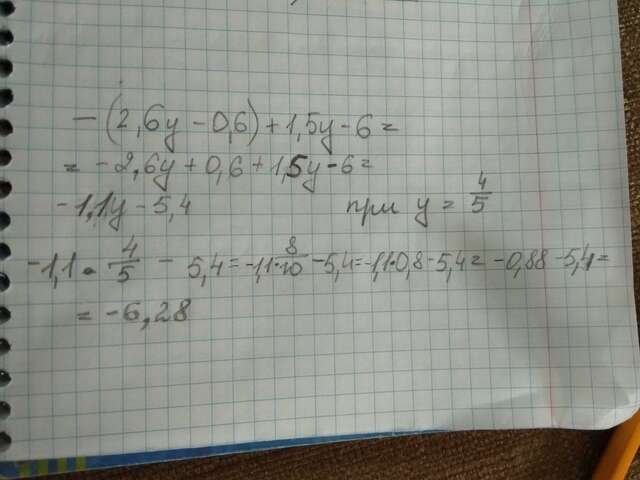 -(2,6y-0,6)+1,5y-6=
= -2,6y+0,6+1,5y-6=
-1,1y-5,4 при y = 4/5
-1,1 • 4/5 - 5,4=-1,1•8/10-5,4=-1,1•0,8-5,4= -0,88-5,4=
= -6,28